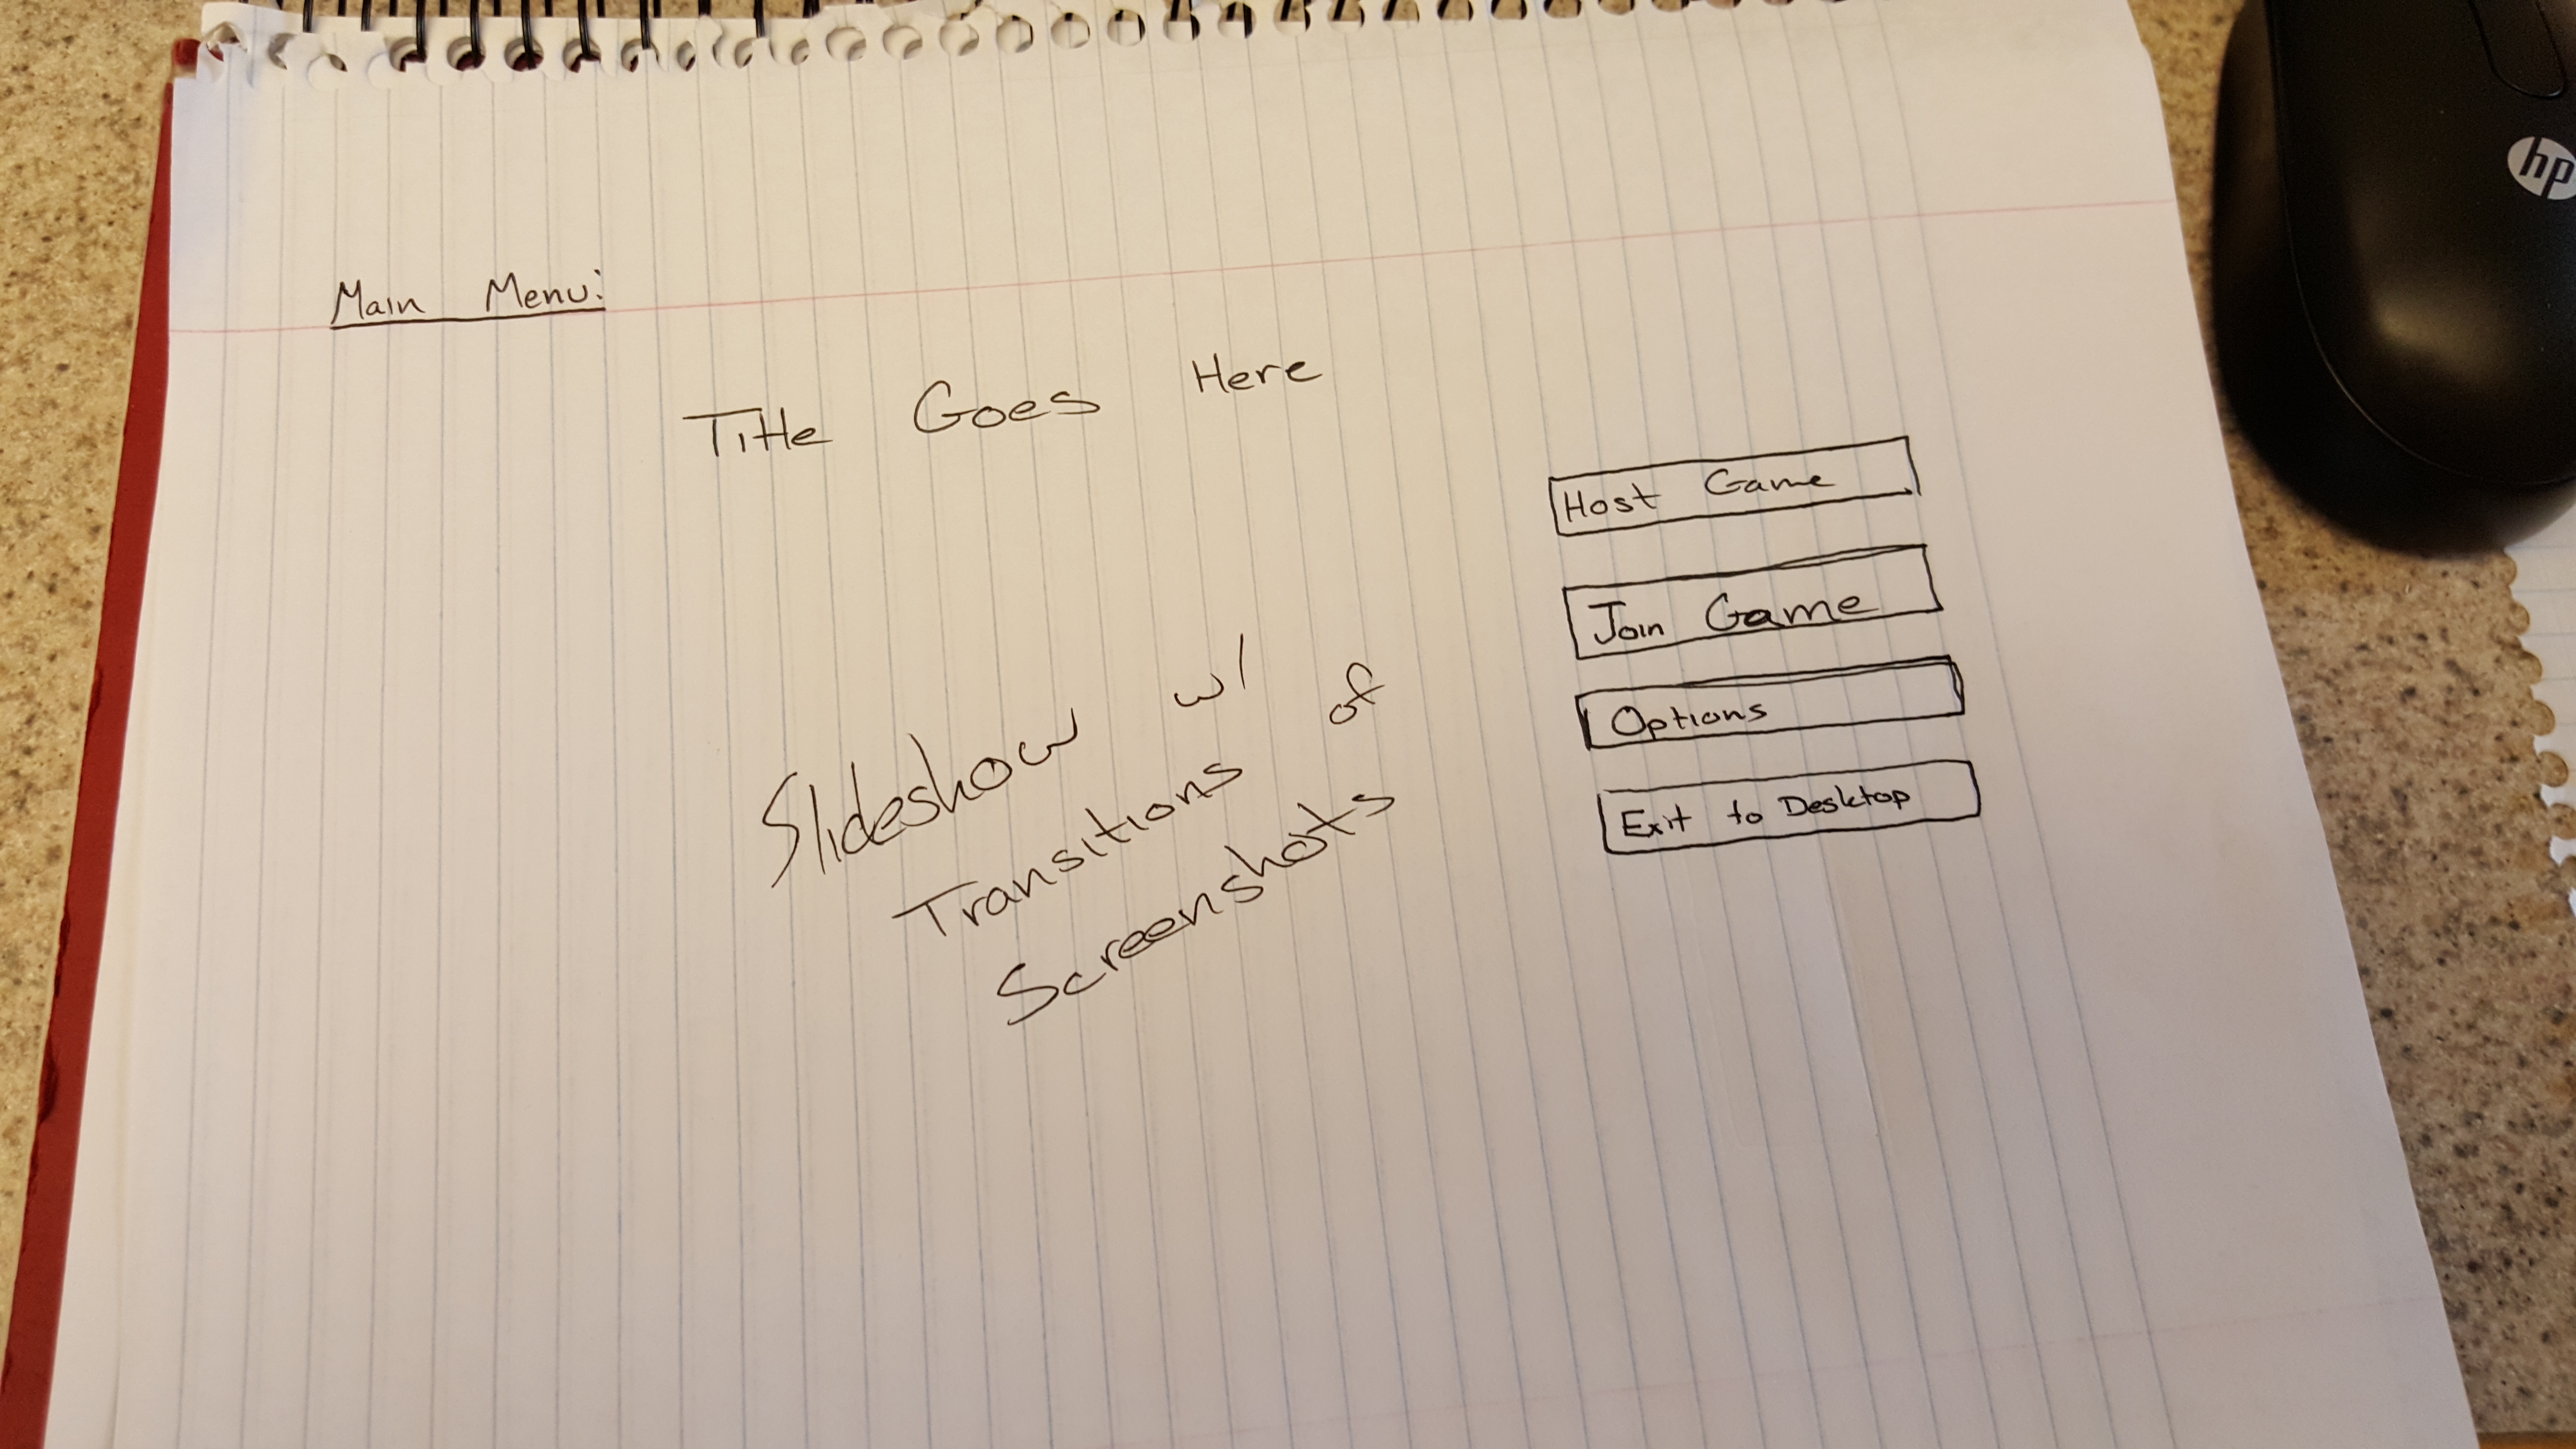 Main Menu:
Title Goes Here
Slideshow w/
Transitions of
Screenshots
Host Game
Join Game
Options
Exit to Desktop
hp